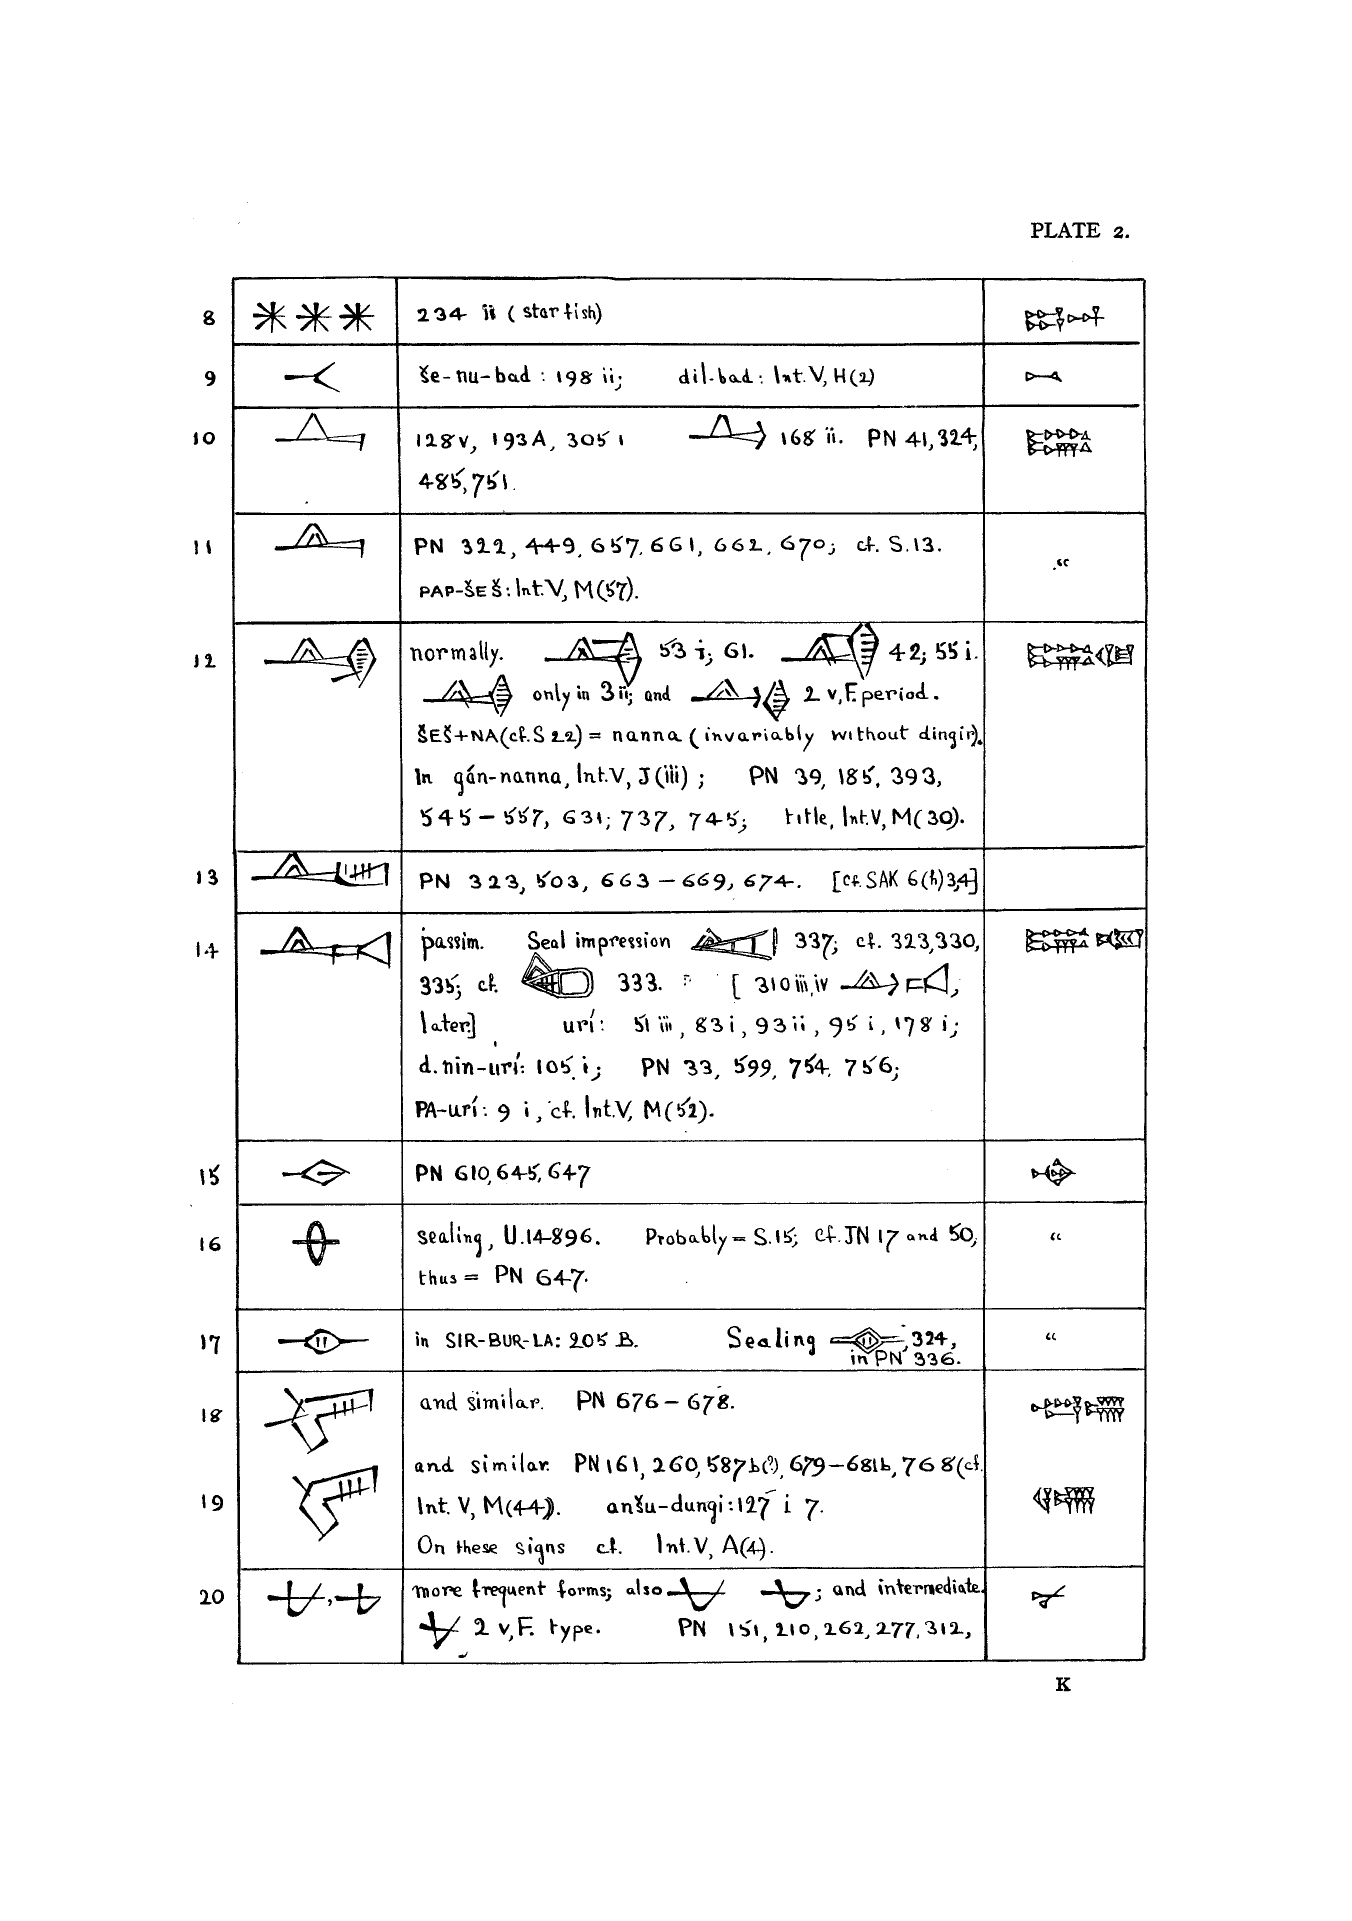 PLATE 2.
8 234 ii (starfish)
9 še-nu-bad : 198 ii; dil-bad : Int. V, H(2)
10 128 v, 193A, 305 i 168 ii. PN 41, 324,
485, 751.
11 PN 322, 449, 657, 661, 662, 670; cf. S.13.
PAP-ŠEŠ : Int. V, M(57).
“
12 normally. 53 i; 61. 42; 55 i.
only in 3 ii; and 2 v, F. period.
ŠEŠ+NA (cf. S 22) = nanna (invariably without dingir).
In gán-nanna, Int. V, J(iii) ; PN 39, 185, 393,
545 – 557, 631; 737, 745; title, Int. V, M(30).
13 PN 323, 503, 663 – 669, 674. [cf. SAK 6(h)3,4]
14 passim. Seal impression 337; cf. 323, 330,
335; cf. 333. [ 310 iii, iv ,
later.] urí : 51 iii, 83 i, 93 ii, 95 i, 178 i;
d. nin-urí : 105 i; PN 33, 599, 754, 756;
PA-urí : 9 i, cf. Int. V, M(52).
15 PN 610, 645, 647
16 sealing, U.14896. Probably = S.15; cf. JN 17 and 50;
thus = PN 647.
“
17 in SIR-BUR-LA: 205 B. Sealing , 324,
in PN 336.
“
18 and similar. PN 676 – 678.
and similar. PN 161, 260, 587b(?), 679–681b, 768 (cf.
19 Int. V, M(44)). anšu-dungi : 127 i 7.
On these signs cf. Int. V, A(4).
20 more frequent forms; also ; and intermediate.
2 v, F. type. PN 151, 210, 262, 277, 312,
K